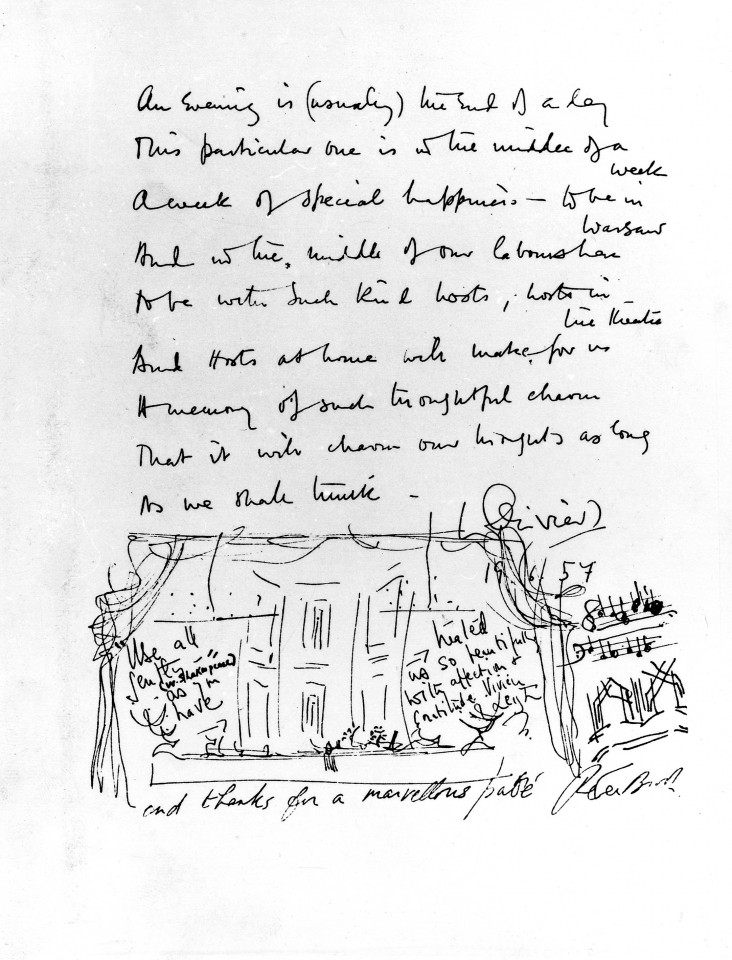 An Evening is (usually) the End of a day
This particular one is in the middle of a
week
A week of special happiness — to be in
Warsaw
And in the, middle of our labours here
to be with such kind hosts, hosts in
the theatre
And Hosts at home will make for us
A memory of such thoughtful charm
That it will charm our thoughts as long
As we shall think —
(Olivier)
19 57
Use all
gently
(W. Shakespeare)
as you
have
healed
us so beautifully
with affection &
Gratitude Vivien
Leigh
and thanks for a marvellous pâté Peter Brook